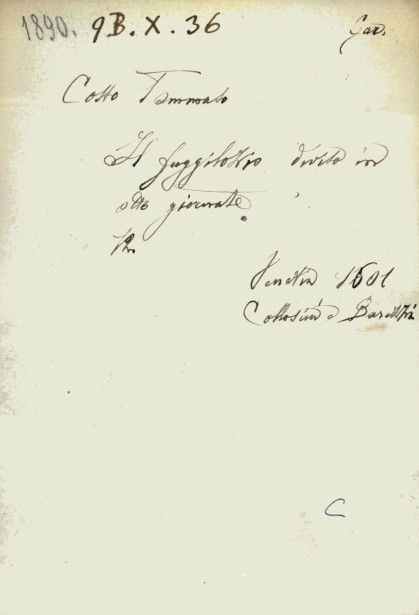 1890. 9B. X. 36
Car.
Costo Tommaso
Il fuggilozio diviso in
otto giornate
12.
Venetia 1601
Barezzi
C